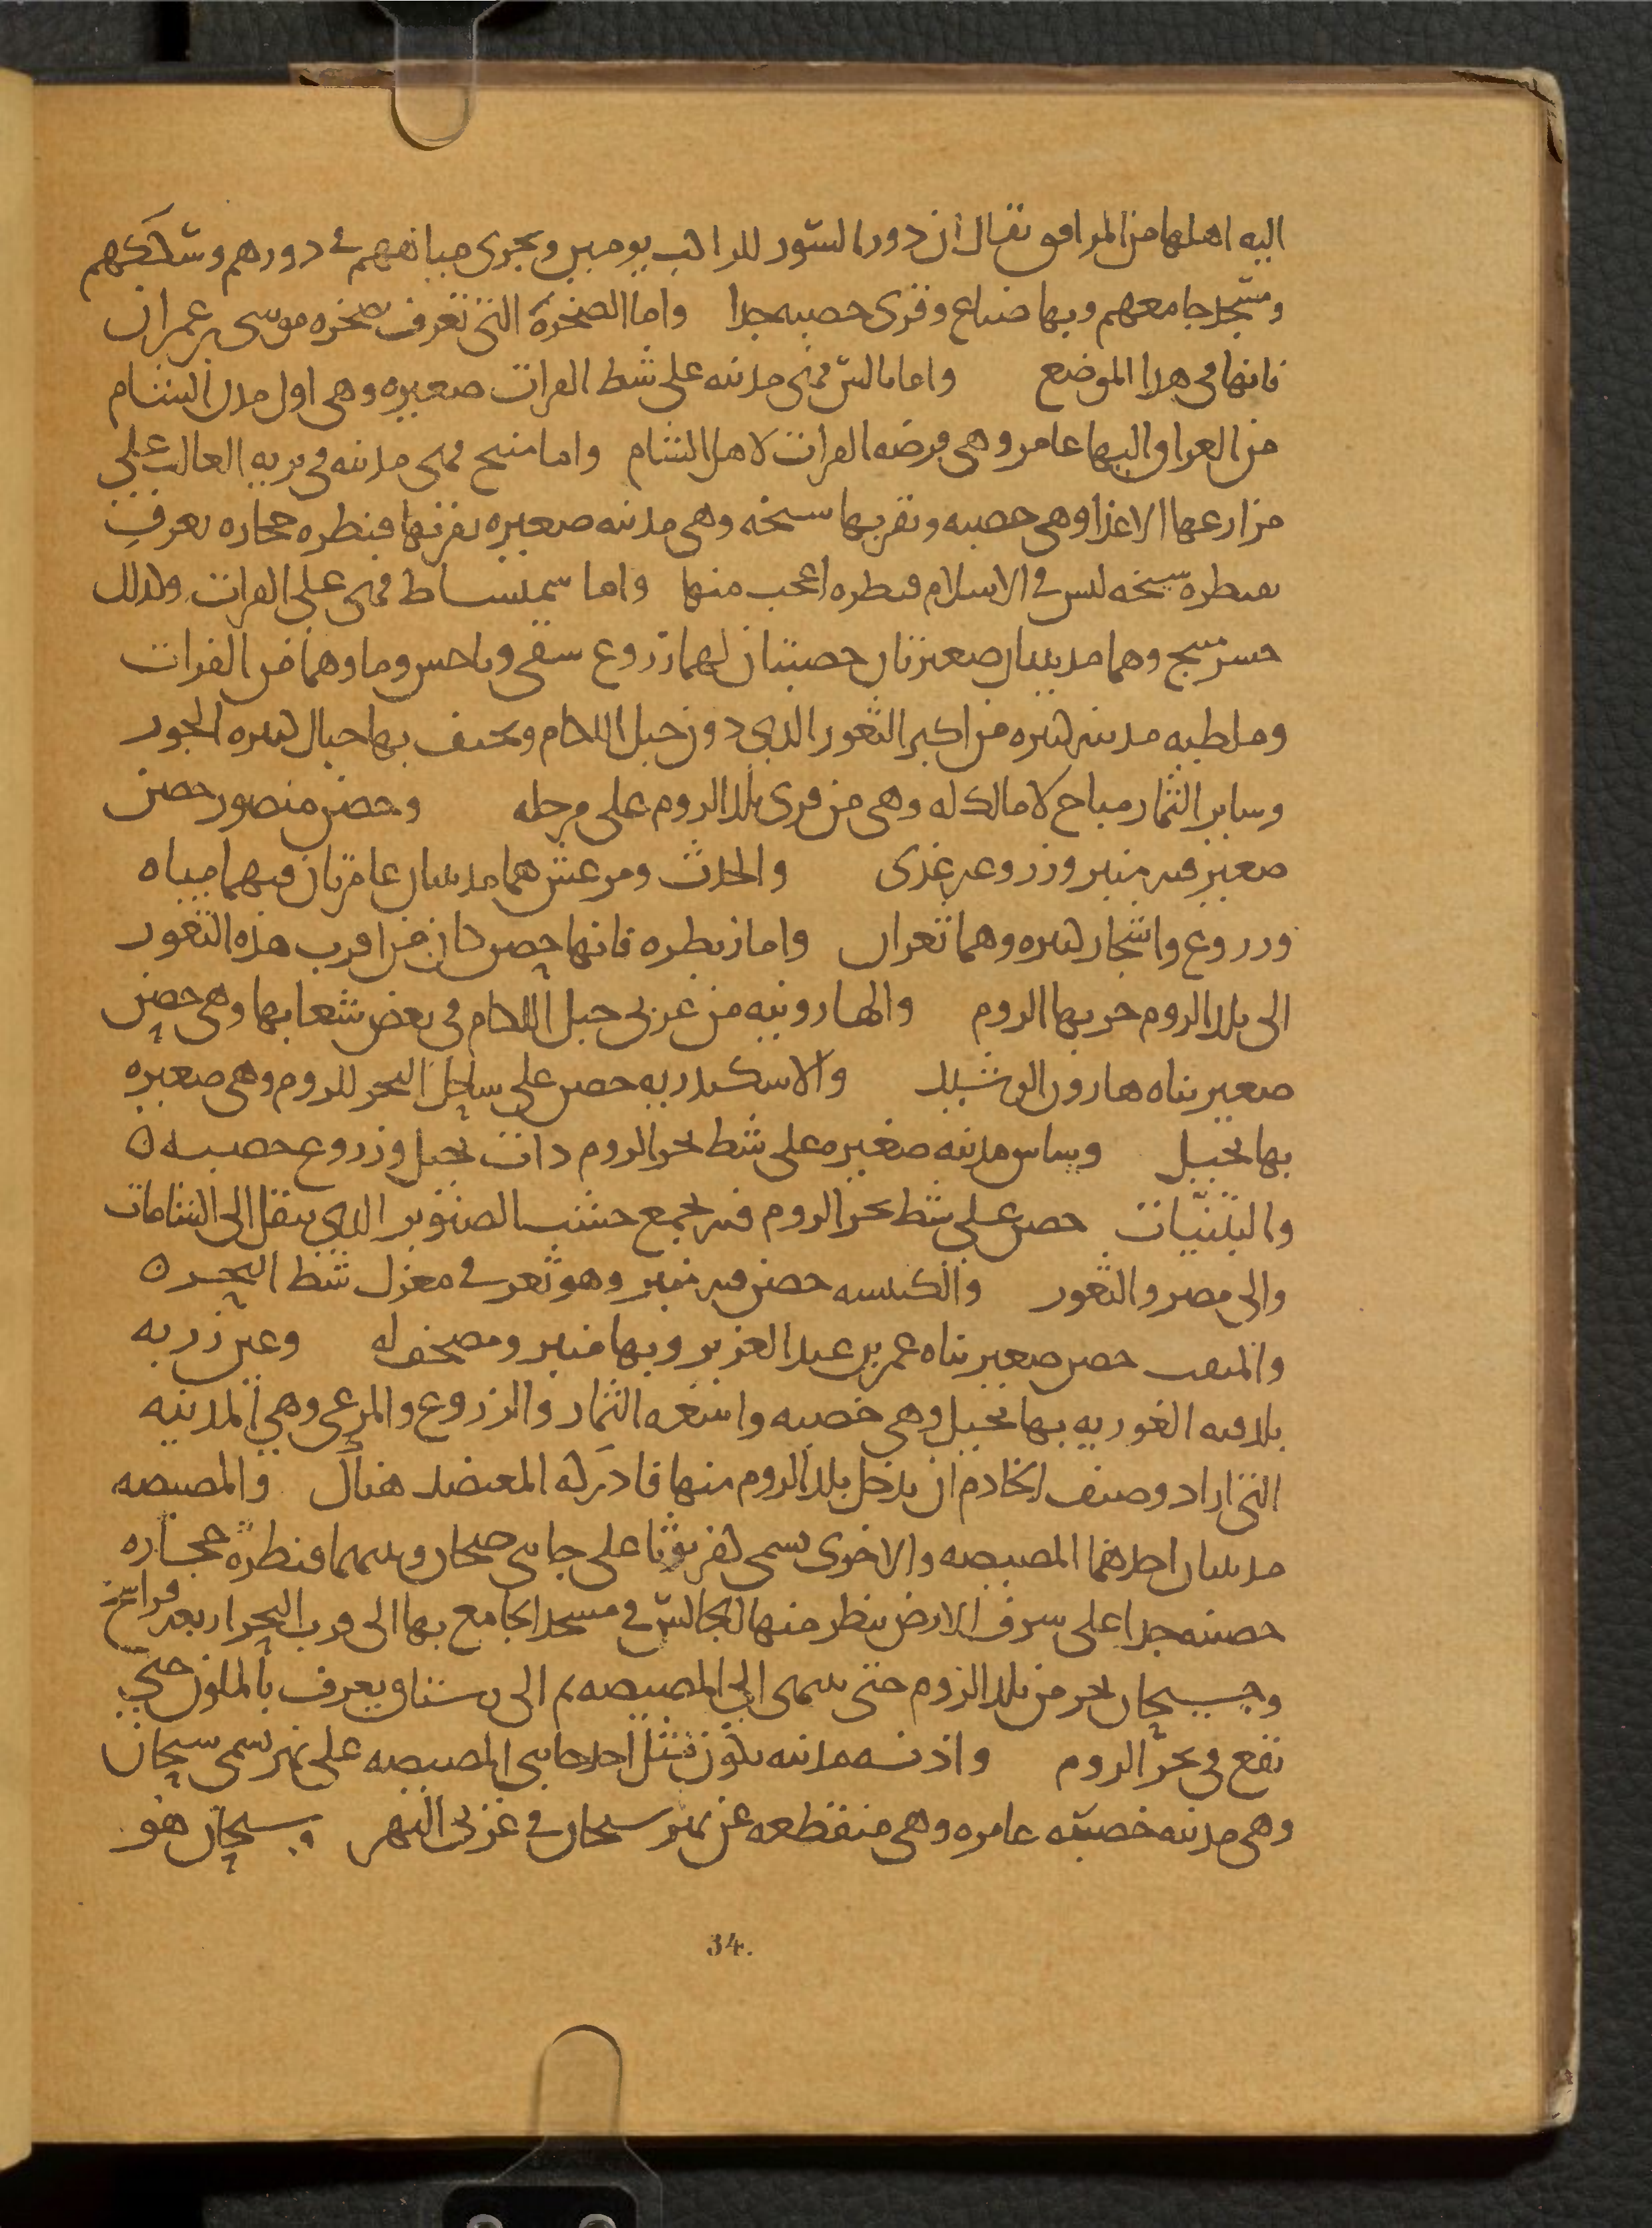 اليه اهلها من المرافق يقال ان دور السور للراكب يومين ويجرى مياههم فى دورهم وسككهم
ومسجد جامعهم وبها ضياع وقرى خصبه جدا واما الصخرة التى تعرف بصخره موسى بن عمران
فانها فى هذا الموضع واما بالس فهى مدينه على شط الفرات صغيره وهى اول مدن الشام
من العراق اليها عامر وهى فرضه الفرات لاهل الشام واما منبج فهى مدينه فى بريه الغالب على
مزارعها الاعذا وهى خصبه وبقربها سنجه وهى مدينه صغيره بقربها قنطره حجاره تعرف
بقنطره سنجه ليس فى الاسلام قنطره اعجب منها واما سميساط فهى على الفرات وكذلك
جسر منبج وهما مدينتان صغيرتان خصبتان لهما زروع سقى وباخس وماوهما من الفرات
وملطيه مدينه كبيره من اكبر الثغور الذى دون جبل اللكام ويحتف بها جبال كثيره الجوز
وساير الثمار مباح لا مالك له وهى من قرى بلد الروم على مرحله وحصن منصور حصن
صغير فيه منبر وزروعه غذى والحدث ومرعش هما مدينتان عامرتان فيهما مياه
وزروع واشجار كثيره وهما ثغران واما زبطره فانها حصن كان من اقرب هذه الثغور
الى بلد الروم خربها الروم والهارونيه من غربى جبل اللكام فى بعض شعابها وهى حصن
صغير بناه هارون الرشيد والاسكندريه حصن على ساحل البحر للروم وهى صغيره
بها نخيل وبياس مدينه صغيره على شط بحر الروم ذات نخيل وزروع خصبه ن
والتينيات حصن على شط بحر الروم فيه يجمع خشب الصنوبر الذى ينقل الى الشامات
والى مصر والثغور والكنيسه حصن فيه منبر وهو ثغر فى معزل شط البحر ن
والمثقب حصن صغير بناه عمر بن عبد العزيز وبها منبر ومصحف له وعين زربه
بلد فيه الغوريه بها نخيل وهى خصبه واسعه الثمار والزروع والمرعى وهى المدينه
التى اراد وصيف الخادم ان يدخل بلد الروم منها فادركه المعتضد هناك والمصيصه
مدينتان احدهما المصيصه والاخرى تسمى كفربوثا على جانبى جيحان وبينهما قنطره حجاره
حصينه جدا على شرف الارض ينظر منها الجالس فى مسجد الجامع بها الى قرب البحر اربعه فراسخ
وجيحان يخر من بلد الروم حتى ينتهى الى المصيصه ثم الى رستاق يعرف بالملون حتى
يقع فى بحر الروم واذنه مدينه تكون مثل احد جانبى المصيصه على نهر يسمى سيحان
وهى مدينه خصبه عامره وهى منقطعه عن نهر سيحان فى غربى النهر وسيحان هو
34.